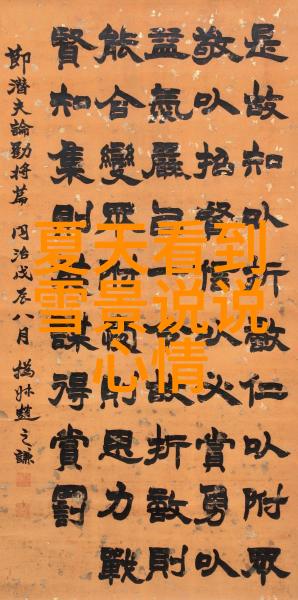 是故知以折敵仁以附眾
敬以招賢信以必賞勇以
益氣嚴以一令故折敵則
能合變眾附愛則思力戰
賢知集則英謀得賞罰
節潛夫論勸將篇 同治戊辰八月 撝叔趙之謙
夏天看到
雪景说说
心情